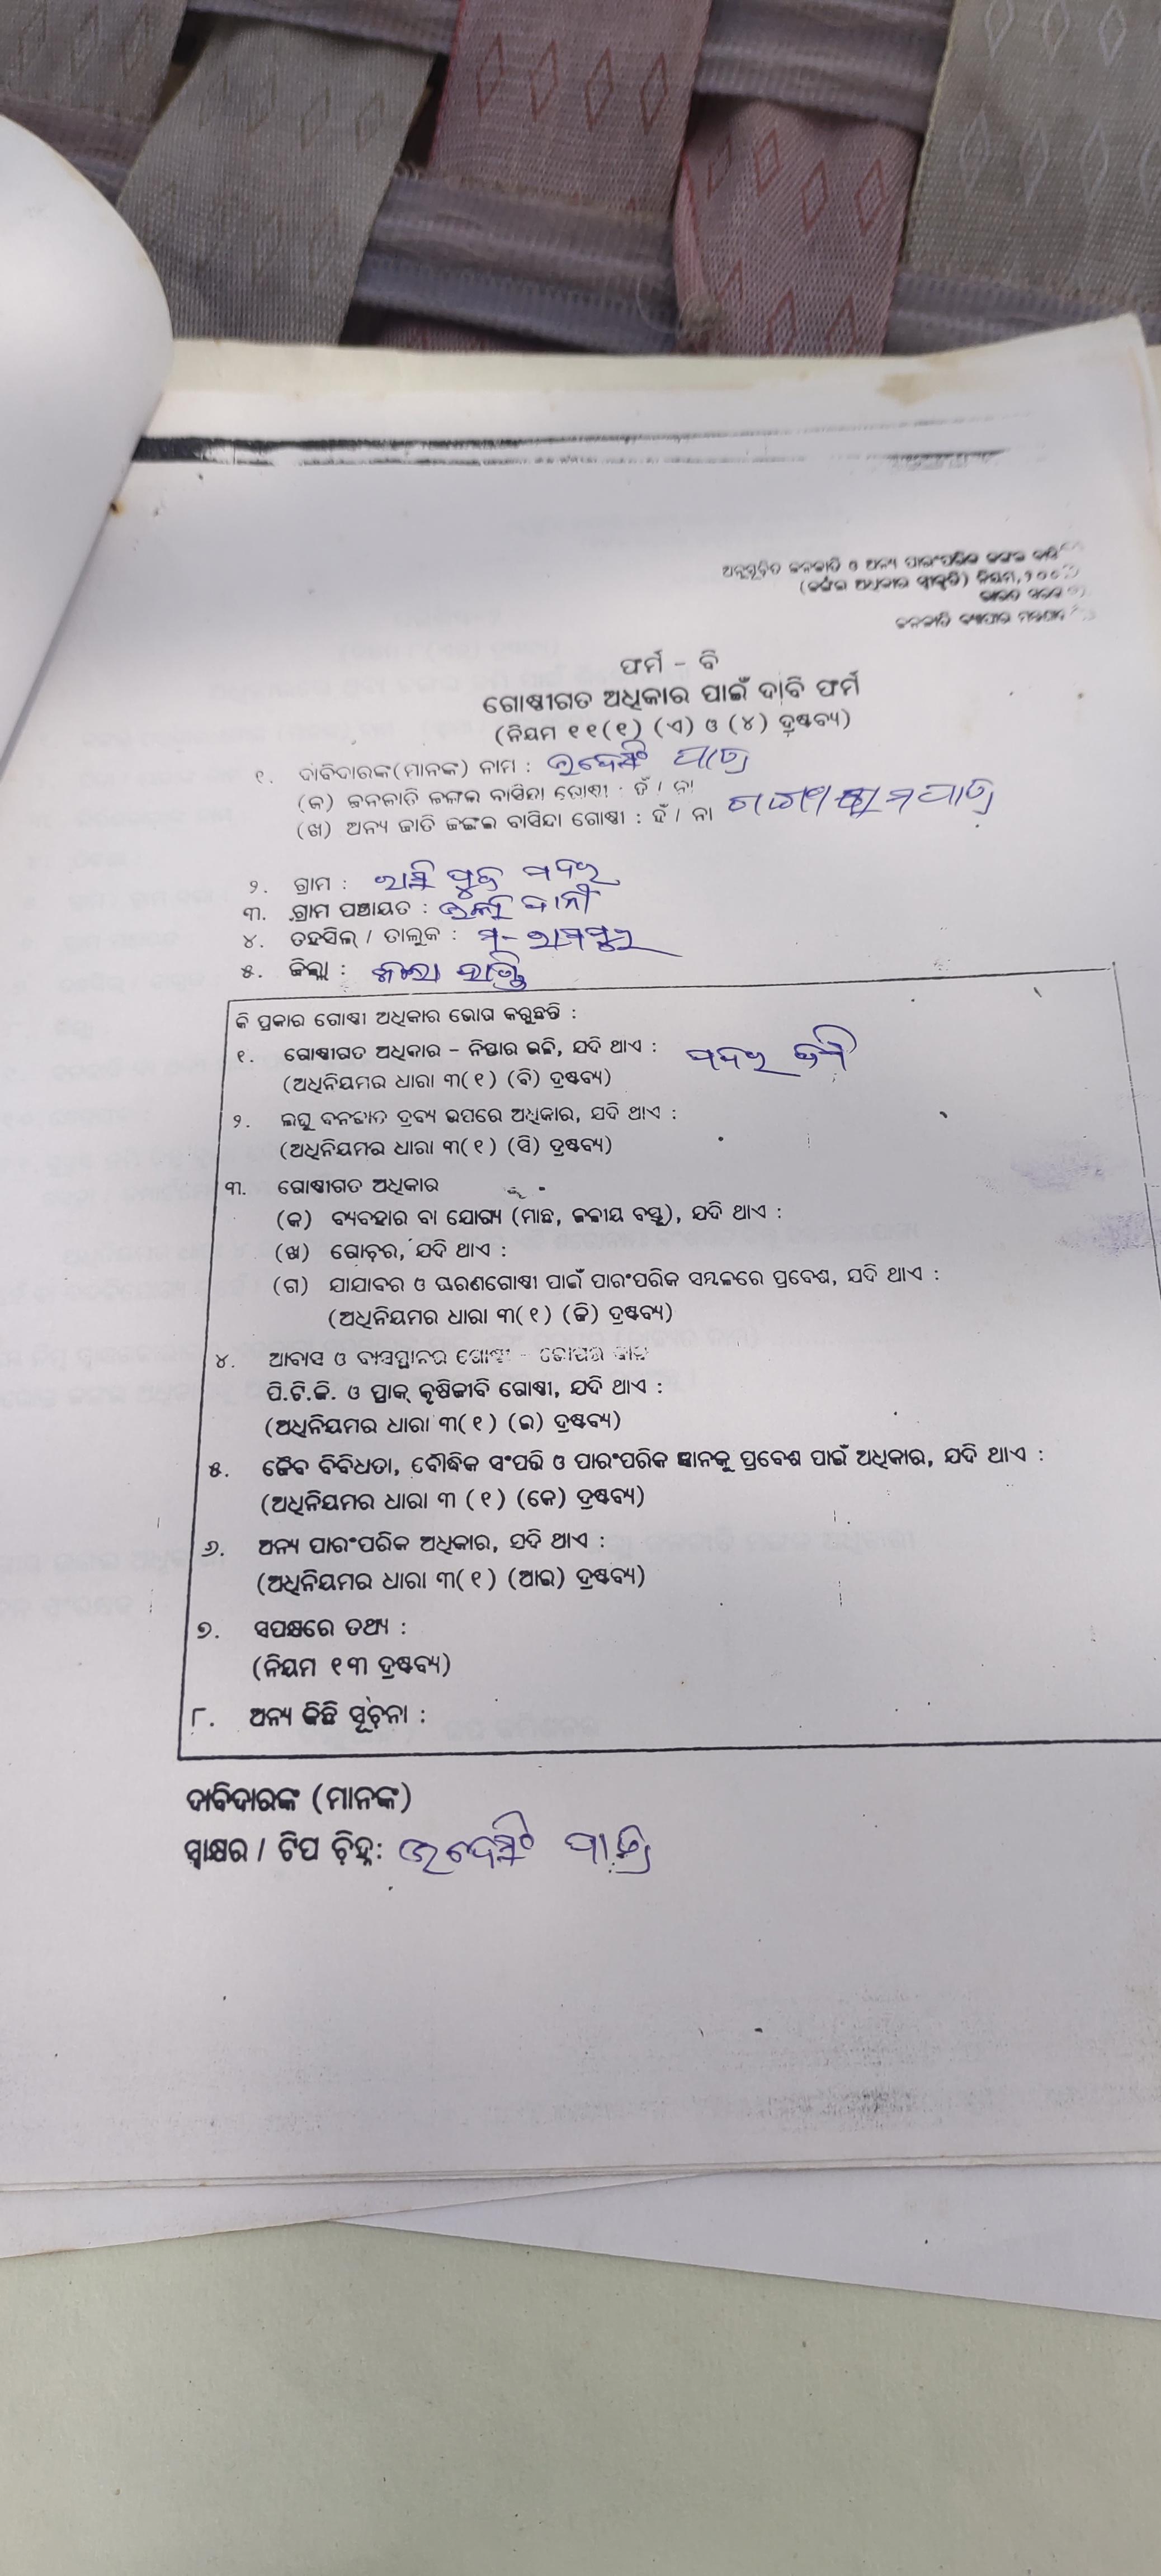 ଅନୁସୂଚିତ ଜନଜାତି ଓ ଅନ୍ୟ ପାରଂପରିକ ଜଙ୍ଗଲ
(ଜଙ୍ଗଲ ଅଧିକାର ସ୍ୱୀକୃତି) ନିୟମ, ୨୦୦
ଭାରତ
ଜନଜାତି
ଫର୍ମ - ବି
ଗୋଷ୍ଠୀଗତ ଅଧିକାର ପାଇଁ ଦାବି ଫର୍ମ
(ନିୟମ ୧୧(୧) (ଏ) ଓ (୪) ଦ୍ରଷ୍ଟବ୍ୟ)
୧. ଦାବିଦାରଙ୍କ(ମାନଙ୍କ) ନାମ : ପାତ୍ର
(କ) ଜନଜାତି ଜଙ୍ଗଲ ବାସିନ୍ଦା ଗୋଷ୍ଠୀ : ହଁ / ନା
(ଖ) ଅନ୍ୟ ଜାତି ଜଙ୍ଗଲ ବାସିନ୍ଦା ଗୋଷ୍ଠୀ : ହଁ / ନା
୨. ଗ୍ରାମ :
୩. ଗ୍ରାମ ପଞ୍ଚାୟତ :
୪. ତହସିଲ୍ / ତାଲୁକ : ମ-ରାମପୁର
୫. ଜିଲ୍ଲା : କଳାହାଣ୍ଡି
କି ପ୍ରକାର ଗୋଷ୍ଠୀ ଅଧିକାର ଭୋଗ କରୁଛନ୍ତି :
୧. ଗୋଷ୍ଠୀଗତ ଅଧିକାର - ନିସ୍ତାର ଭଳି, ଯଦି ଥାଏ :
(ଅଧିନିୟମର ଧାରା ୩(୧) (ବି) ଦ୍ରଷ୍ଟବ୍ୟ)
୨. ଲଘୁ ବନଜାତ ଦ୍ରବ୍ୟ ଉପରେ ଅଧିକାର, ଯଦି ଥାଏ :
(ଅଧିନିୟମର ଧାରା ୩(୧) (ସି) ଦ୍ରଷ୍ଟବ୍ୟ)
୩. ଗୋଷ୍ଠୀଗତ ଅଧିକାର
(କ) ବ୍ୟବହାର ବା ଯୋଗ୍ୟ (ମାଛ, ଜଳୀୟ ବସ୍ତୁ), ଯଦି ଥାଏ :
(ଖ) ଗୋଚର, ଯଦି ଥାଏ :
(ଗ) ଯାଯାବର ଓ ଚାରଣଗୋଷ୍ଠୀ ପାଇଁ ପାରଂପରିକ ସମ୍ବଳରେ ପ୍ରବେଶ, ଯଦି ଥାଏ :
(ଅଧିନିୟମର ଧାରା ୩(୧) (ଜି) ଦ୍ରଷ୍ଟବ୍ୟ)
୪. ଆବାସ ଓ ବାସସ୍ଥାନର ଗୋଷ୍ଠୀ -
ପି.ଟି.ଜି. ଓ ପ୍ରାକ୍ କୃଷିଜୀବି ଗୋଷ୍ଠୀ, ଯଦି ଥାଏ :
(ଅଧିନିୟମର ଧାରା ୩(୧) (ଇ) ଦ୍ରଷ୍ଟବ୍ୟ)
୫. ଜୈବ ବିବିଧତା, ବୌଦ୍ଧିକ ସଂପତ୍ତି ଓ ପାରଂପରିକ ଜ୍ଞାନକୁ ପ୍ରବେଶ ପାଇଁ ଅଧିକାର, ଯଦି ଥାଏ :
(ଅଧିନିୟମର ଧାରା ୩ (୧) (କେ) ଦ୍ରଷ୍ଟବ୍ୟ)
୬. ଅନ୍ୟ ପାରଂପରିକ ଅଧିକାର, ଯଦି ଥାଏ :
(ଅଧିନିୟମର ଧାରା ୩(୧) (ଆଇ) ଦ୍ରଷ୍ଟବ୍ୟ)
୭. ସପକ୍ଷରେ ତଥ୍ୟ :
(ନିୟମ ୧୩ ଦ୍ରଷ୍ଟବ୍ୟ)
୮. ଅନ୍ୟ କିଛି ସୂଚନା :
ଦାବିଦାରଙ୍କ (ମାନଙ୍କ)
ସ୍ୱାକ୍ଷର / ଟିପ ଚିହ୍ନ: ପାତ୍ର